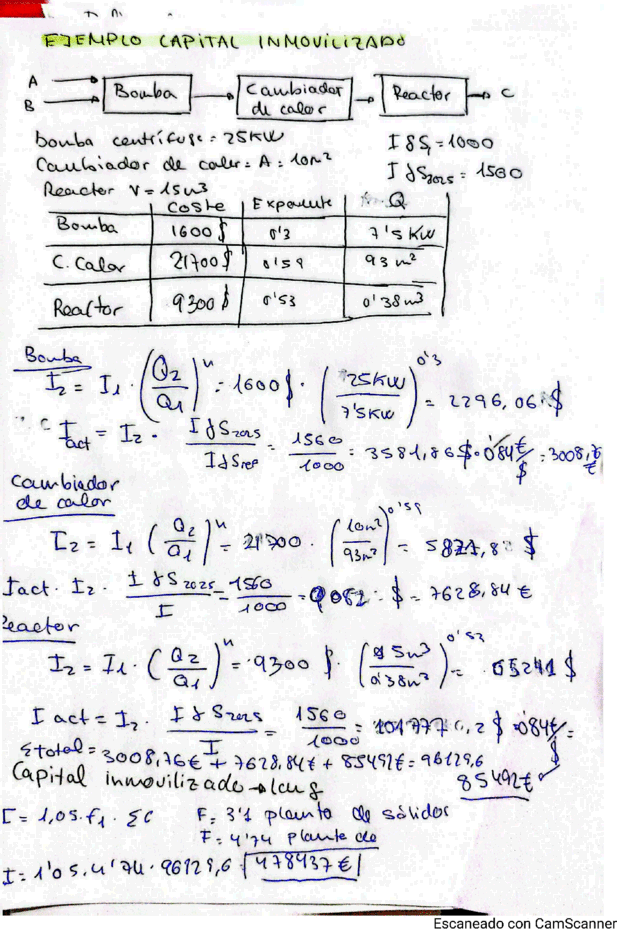 EJEMPLO CAPITAL INMOVILIZADO
A
B
Bomba
Cambiador de calor
Reactor
C
bomba centrífuga = 25KW
I&S1=1000
Cambiador de calor = A = 10m²
I&S2025 = 1560
Reactor V = 15m3
Coste Exponente Q
Bomba 1600$ 0'3 7'5 KW
C. Calor 21700$ 0'59 93 m²
Reactor 9300$ 0'53 0'38m3
Bomba
I2 = I1 · (Q2/Q1)^n = 1600$ · (25KW/7'5KW)^0'3 = 2296,06 $
Iact = I2 · I&S2025/I&Sref = 1560/1000 = 3581,86$ · 0'84€/$ = 3008,76 €
Cambiador
de calor
I2 = I1 (Q2/Q1)^n = 21700 · (10m²/93m²)^0'59 = $
Iact. I2 · I&S2025/I = 1560/1000 = 9082 = $ = 7628,84 €
Reactor
I2 = I1 · (Q2/Q1)^n = 9300 $ · (15m3/0'38m3)^0'53 = 65241 $
I act = I2 · I&S2025/I = 1560/1000 = $ · 0'84€/$ =
85492€
Σtotal = 3008,76€ + 7628,84€ + 85492€ = 96129,6
Capital inmovilizado → Lang
I = 1,05 · f1 · ΣC F = 3'1 planta de sólidos
F = 4'74 planta de
I = 1'05 · 4'74 · 96129,6 = 478437 €
Escaneado con CamScanner